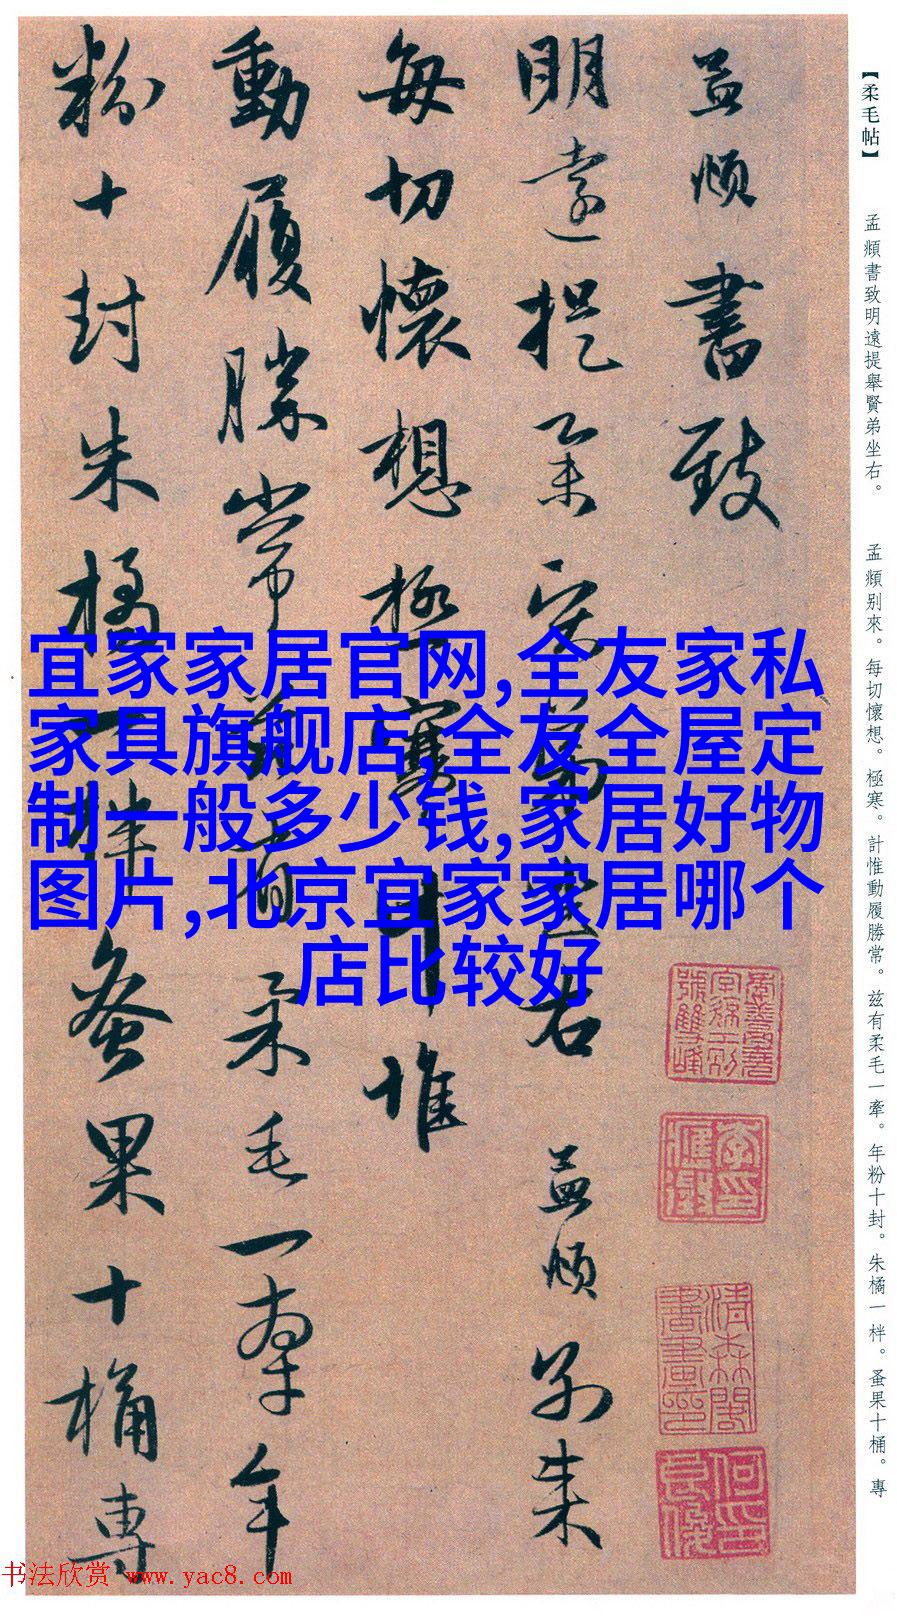 【柔毛帖】
孟頫書致明遠提舉賢弟坐右。
孟頫别來。每切懷想。極寒。計惟動履勝常。兹有柔毛一牽。年粉十封。朱橘一柈。蚤果十桶。專
孟頫書致
明遠提舉賢弟坐右 孟頫别來
每切懷想極寒計惟
動履勝常兹有柔毛一牽年
粉十封朱橘一柈蚤果十桶專
宜家家居官网,全友家私
家具旗舰店,全友全屋定
制一般多少钱,家居好物
图片,北京宜家家居哪个
店比较好
书法欣赏 www.yac8.com